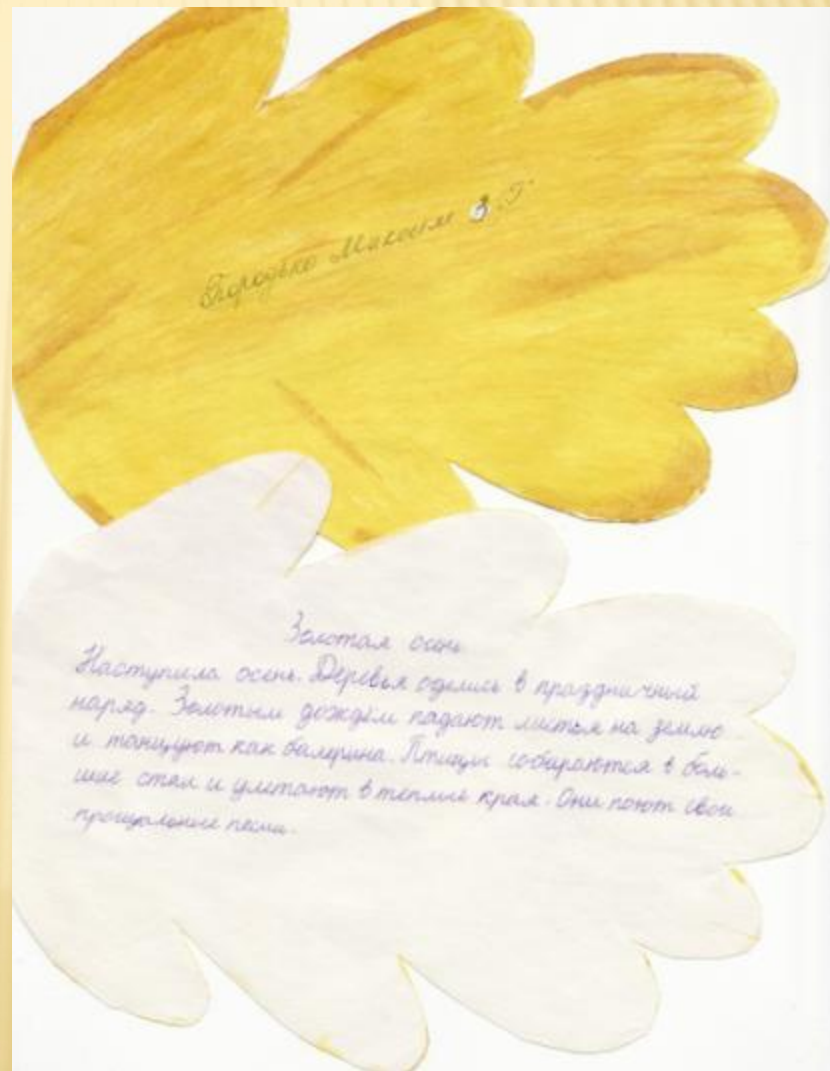 Городько Максим 3 Г
Золотая осень
Наступила осень. Деревья оделись в праздничный
наряд. Золотым дождём падают листья на землю
и танцуют как балерина. Птицы собираются в боль-
шие стаи и улетают в теплые края. Они поют свои
прощальные песни.